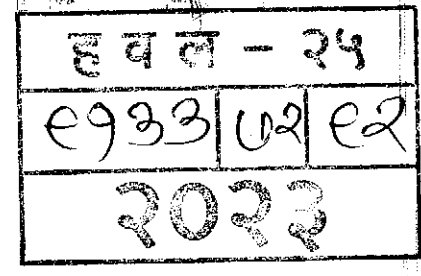 हवल - २५
९१३३ ७२ ९२
२०२३